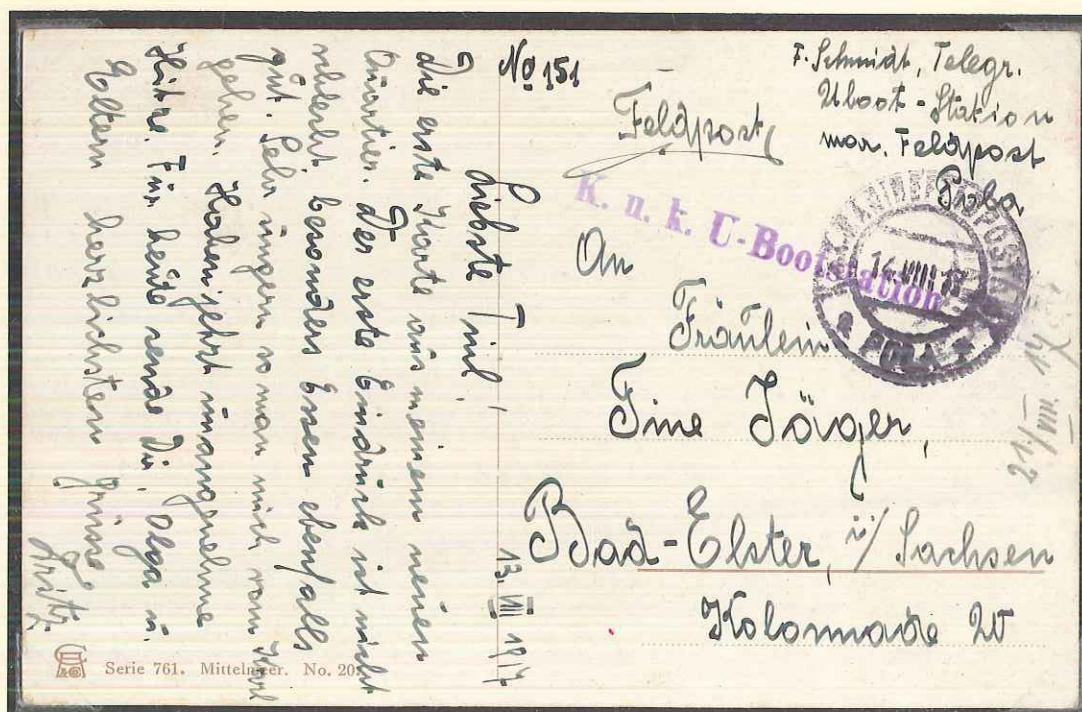 No 151
Feldpost
F. Schmidt, Telegr.
Uboot-Station
mar. Feldpost
Pola
K. u. k. U-Bootstation
K.u.K. MARINEFELDPOSTAMT
14.VIII.17
a POLA
An
Fräulein
Tine Jäger,
Bad-Elster, i/Sachsen
Kolonnade 20
21/VIII. 17
13. VIII 1917
Liebste Tini!
Die erste Karte aus meinem neuen
Quartier. Der erste Eindruck ist nicht
schlecht, besonders Essen ebenfalls
gut. Sehr ungern so man mich vom
gehen. Haben jetzt unangenehme
Hitze. Für heute sende Dir, Olga u.
Eltern herzlichsten Grüsse
Fritz
Serie 761. Mittelmeer. No. 20.